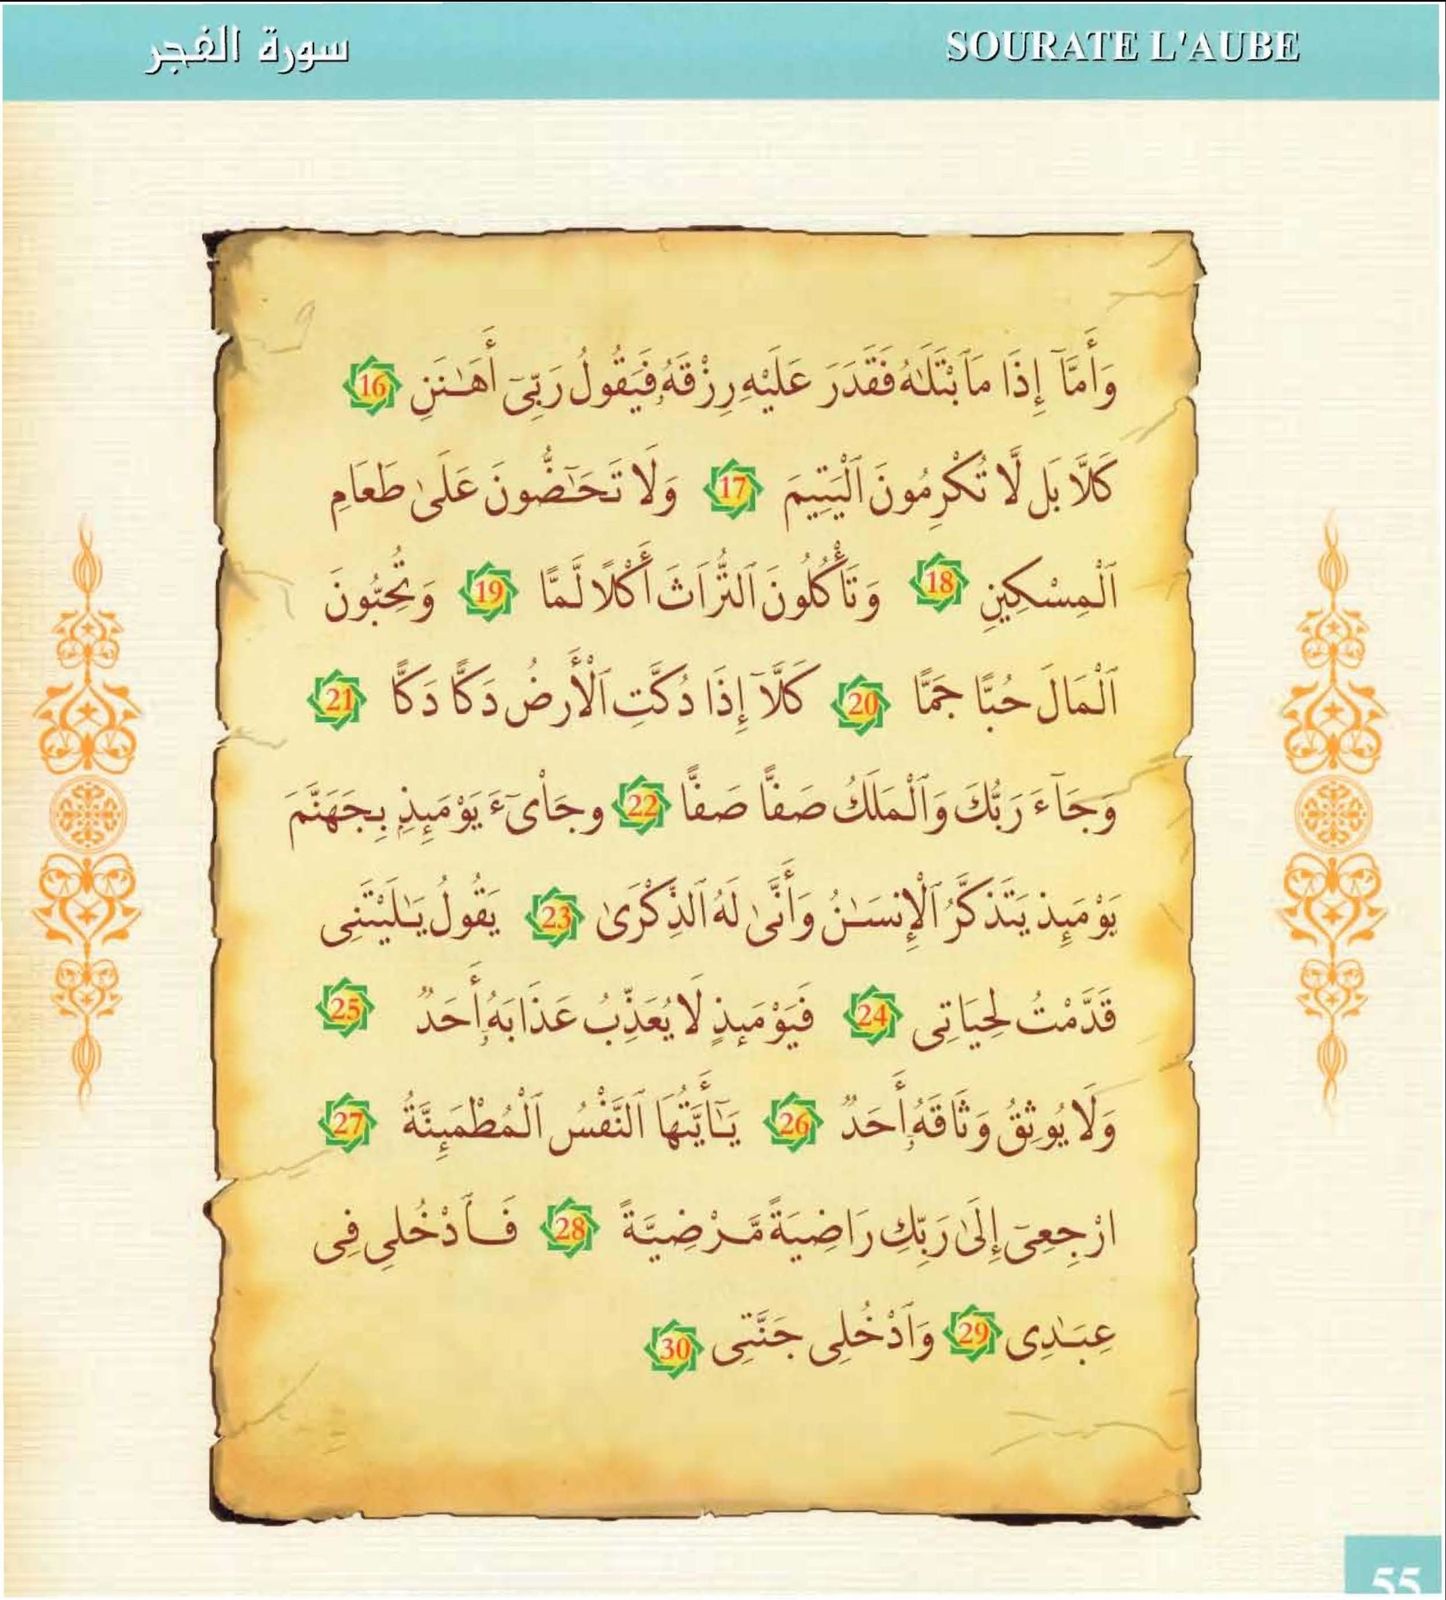 سورة الفجر
SOURATE L'AUBE
وَأَمَّآ إِذَا مَا ٱبْتَلَىٰهُ فَقَدَرَ عَلَيْهِ رِزْقَهُۥ فَيَقُولُ رَبِّىٓ أَهَـٰنَنِ 16
كَلَّا بَل لَّا تُكْرِمُونَ ٱلْيَتِيمَ 17 وَلَا تَحَـٰٓضُّونَ عَلَىٰ طَعَامِ
ٱلْمِسْكِينِ 18 وَتَأْكُلُونَ ٱلتُّرَاثَ أَكْلًا لَّمًّا 19 وَتُحِبُّونَ
ٱلْمَالَ حُبًّا جَمًّا 20 كَلَّآ إِذَا دُكَّتِ ٱلْأَرْضُ دَكًّا دَكًّا 21
وَجَآءَ رَبُّكَ وَٱلْمَلَكُ صَفًّا صَفًّا 22 وجَاْىٓءَ يَوْمَئِذِۭ بِجَهَنَّمَ
يَوْمَئِذٍ يَتَذَكَّرُ ٱلْإِنسَـٰنُ وَأَنَّىٰ لَهُ ٱلذِّكْرَىٰ 23 يَقُولُ يَـٰلَيْتَنِى
قَدَّمْتُ لِحَيَاتِى 24 فَيَوْمَئِذٍ لَا يُعَذِّبُ عَذَابَهُۥٓ أَحَدٌ 25
وَلَا يُوثِقُ وَثَاقَهُۥٓ أَحَدٌ 26 يَـٰٓأَيَّتُهَا ٱلنَّفْسُ ٱلْمُطْمَئِنَّةُ 27
ارْجِعِىٓ إِلَىٰ رَبِّكِ رَاضِيَةً مَّرْضِيَّةً 28 فَٱدْخُلِى فِى
عِبَـٰدِى 29 وَٱدْخُلِى جَنَّتِى 30
55